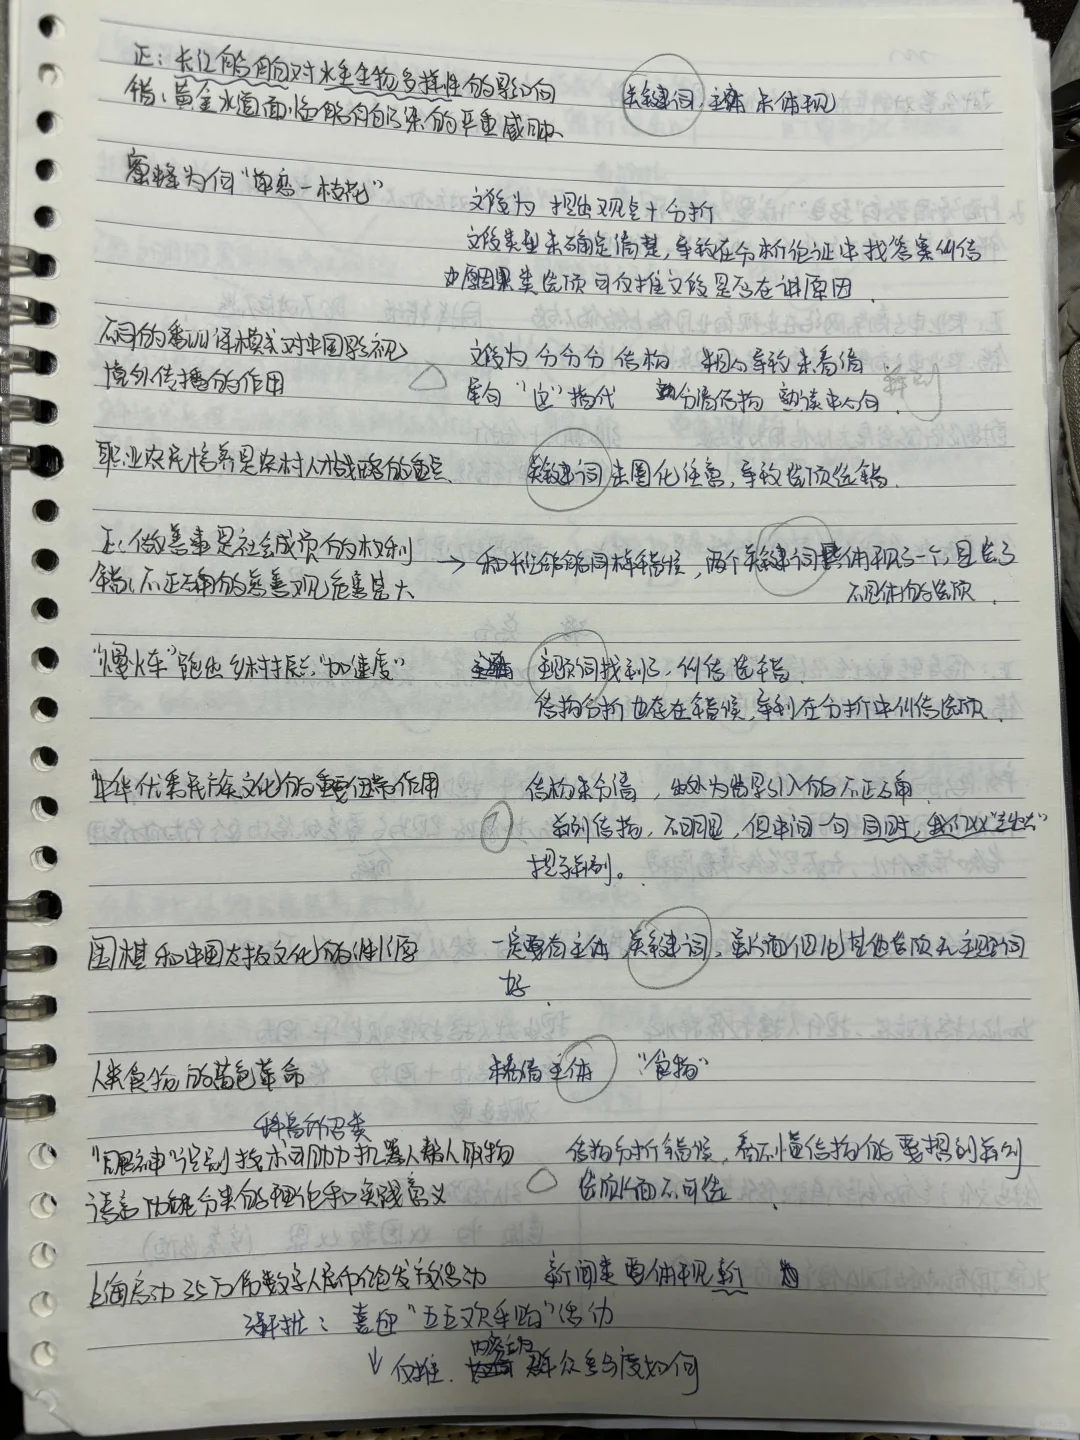 正：长江船舶对水生生物多样性的影响
错：黄金水道面临船舶污染的严重威胁
关键词，主体未体现
蜜蜂为何"单恋一枝花"
文段为 提出观点+分析
文段类型未确定清楚，导致在分析论证中找答案纠结
原因类选项可仅推文段是否在讲原因．
不同的翻译模式对中国影视
境外传播的作用
文段为 分分分 结构 粗心导致未看清
尾句"这"指代 分清结构 熟读中心句．
并列
职业农民培养是农村人才战略的重点
关键词未圈化注意，导致选项选错．
正：做善事是社会成员的权利
错：不正确的慈善观危害甚大
→ 和长江船舶同样错误，两个关键词只体现了一个，且选了
不具体的选项．
"慢火车"跑出乡村振兴"加速度"
主题词找到了，纠结选错．
结构分析也存在错误，导致在分析中纠结选项．
中华优秀民族文化的重要纽带作用
结构未分清，以为背景引入的不正确
并列结构，不明显，但中间一句 同时，我们以
提示并列。
围棋和中国古代文化的渊源
一定要有主体 关键词，虽片面但比其他选项无主题词
好．
人类食物的蓝色革命
未看清主体 "食物"
科普介绍类
"眼神"识别技术可助力机器人帮人取物
语言功能分类的理论和实践意义
结构分析错误，看不懂结构的要想到并列
选项片面不可选
上海启动35万份数字人民币红包发放活动
新闻类要体现新
强推：喜迎"五五欢乐购"活动
↓ 仅推．群众参与度如何